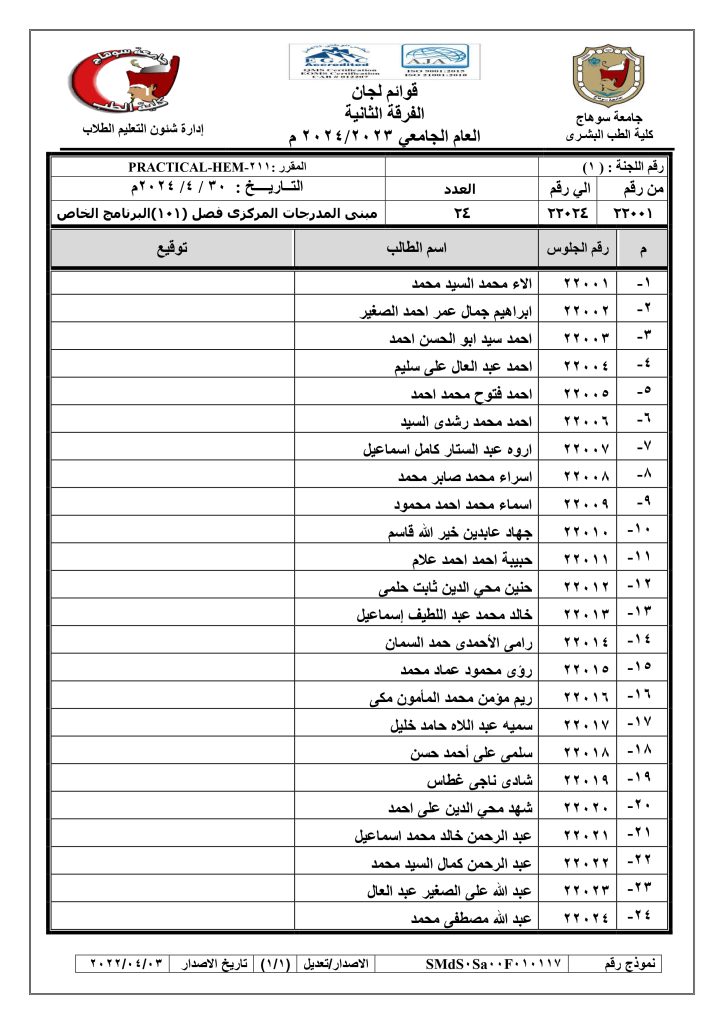 جامعة سوهاج
كلية الطب
EGAC
Accredited
QMS Certification
EOMS Certification
CAB # 012207
AJA
ISO 9001:2015
ISO 21001:2018
جامعة سوهاج
كلية الطب البشرى
قوائم لجان
الفرقة الثانية
العام الجامعي ٢٠٢٤/٢٠٢٣ م
إدارة شئون التعليم الطلاب
رقم اللجنة : ( ١ )
المقرر :PRACTICAL-HEM-٢١١
من رقم الي رقم العدد التــاريـــخ : ٣٠ / ٤/ ٢٠٢٤م
٢٢٠٠١ ٢٢٠٢٤ ٢٤ مبنى المدرجات المركزى فصل (١٠١)البرنامج الخاص
م رقم الجلوس اسم الطالب توقيع
١- ٢٢٠٠١ الاء محمد السيد محمد
٢- ٢٢٠٠٢ ابراهيم جمال عمر احمد الصغير
٣- ٢٢٠٠٣ احمد سيد ابو الحسن احمد
٤- ٢٢٠٠٤ احمد عبد العال على سليم
٥- ٢٢٠٠٥ احمد فتوح محمد احمد
٦- ٢٢٠٠٦ احمد محمد رشدى السيد
٧- ٢٢٠٠٧ اروه عبد الستار كامل اسماعيل
٨- ٢٢٠٠٨ اسراء محمد صابر محمد
٩- ٢٢٠٠٩ اسماء محمد احمد محمود
١٠- ٢٢٠١٠ جهاد عابدين خير الله قاسم
١١- ٢٢٠١١ حبيبة احمد احمد علام
١٢- ٢٢٠١٢ حنين محي الدين ثابت حلمى
١٣- ٢٢٠١٣ خالد محمد عبد اللطيف إسماعيل
١٤- ٢٢٠١٤ رامى الأحمدى حمد السمان
١٥- ٢٢٠١٥ رؤى محمود عماد محمد
١٦- ٢٢٠١٦ ريم مؤمن محمد المأمون مكى
١٧- ٢٢٠١٧ سميه عبد اللاه حامد خليل
١٨- ٢٢٠١٨ سلمى على أحمد حسن
١٩- ٢٢٠١٩ شادى ناجى غطاس
٢٠- ٢٢٠٢٠ شهد محي الدين على احمد
٢١- ٢٢٠٢١ عبد الرحمن خالد محمد اسماعيل
٢٢- ٢٢٠٢٢ عبد الرحمن كمال السيد محمد
٢٣- ٢٢٠٢٣ عبد الله على الصغير عبد العال
٢٤- ٢٢٠٢٤ عبد الله مصطفى محمد
نموذج رقم SMdS٠Sa٠٠F٠١٠١١٧ الاصدار/تعديل (١/١) تاريخ الاصدار ٢٠٢٢/٠٤/٠٣